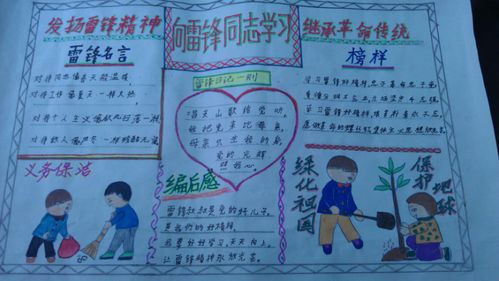 发扬雷锋精神
向雷锋同志学习
继承革命传统
雷锋名言
对待同志像春天般温暖
对待工作像夏天一样火热
对待个人主义像秋风扫落叶一样
对待敌人像严冬一样残酷无情
雷锋日记一则
唱支山歌给党听
我把党来比母亲
母亲只生我的身
党的光辉
照我心
榜样
义务保洁
编后感
雷锋叔叔是党的好儿子
是我们的好榜样
我要好好学习,天天向上
让雷锋精神永放光芒
绿化祖国
保护地球